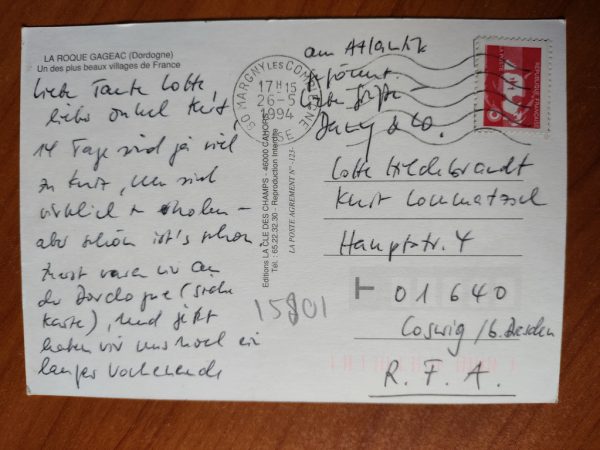 LA ROQUE GAGEAC (Dordogne)
Un des plus beaux villages de France
Liebe Tante Lotte,
lieber Onkel Kurt,
14 Tage sind ja viel
zu kurz, um sich
wirklich zu erholen –
aber schön ist's schon
Zuerst waren wir an
der Dordogne (siehe
Karte), und jetzt
haben wir uns noch ein
langes Wochenende
am Atlantik
gegönnt.
Liebe Grüße
& Co.
Editions LA CLE DES CHAMPS - 46000 CAHORS
Tél. : 65.22.32.30 - Reproduction interdite
LA POSTE AGREMENT N° -123-
60 MARGNY LES COMPIEGNE
17H15
26-5
1994
OISE
REPUBLIQUE FRANÇAISE
LA POSTE
Lotte Hildebrandt
Kurt Lommatzsch
Hauptstr. 4
01640
Coswig / b. Dresden
R.F.A.
15801